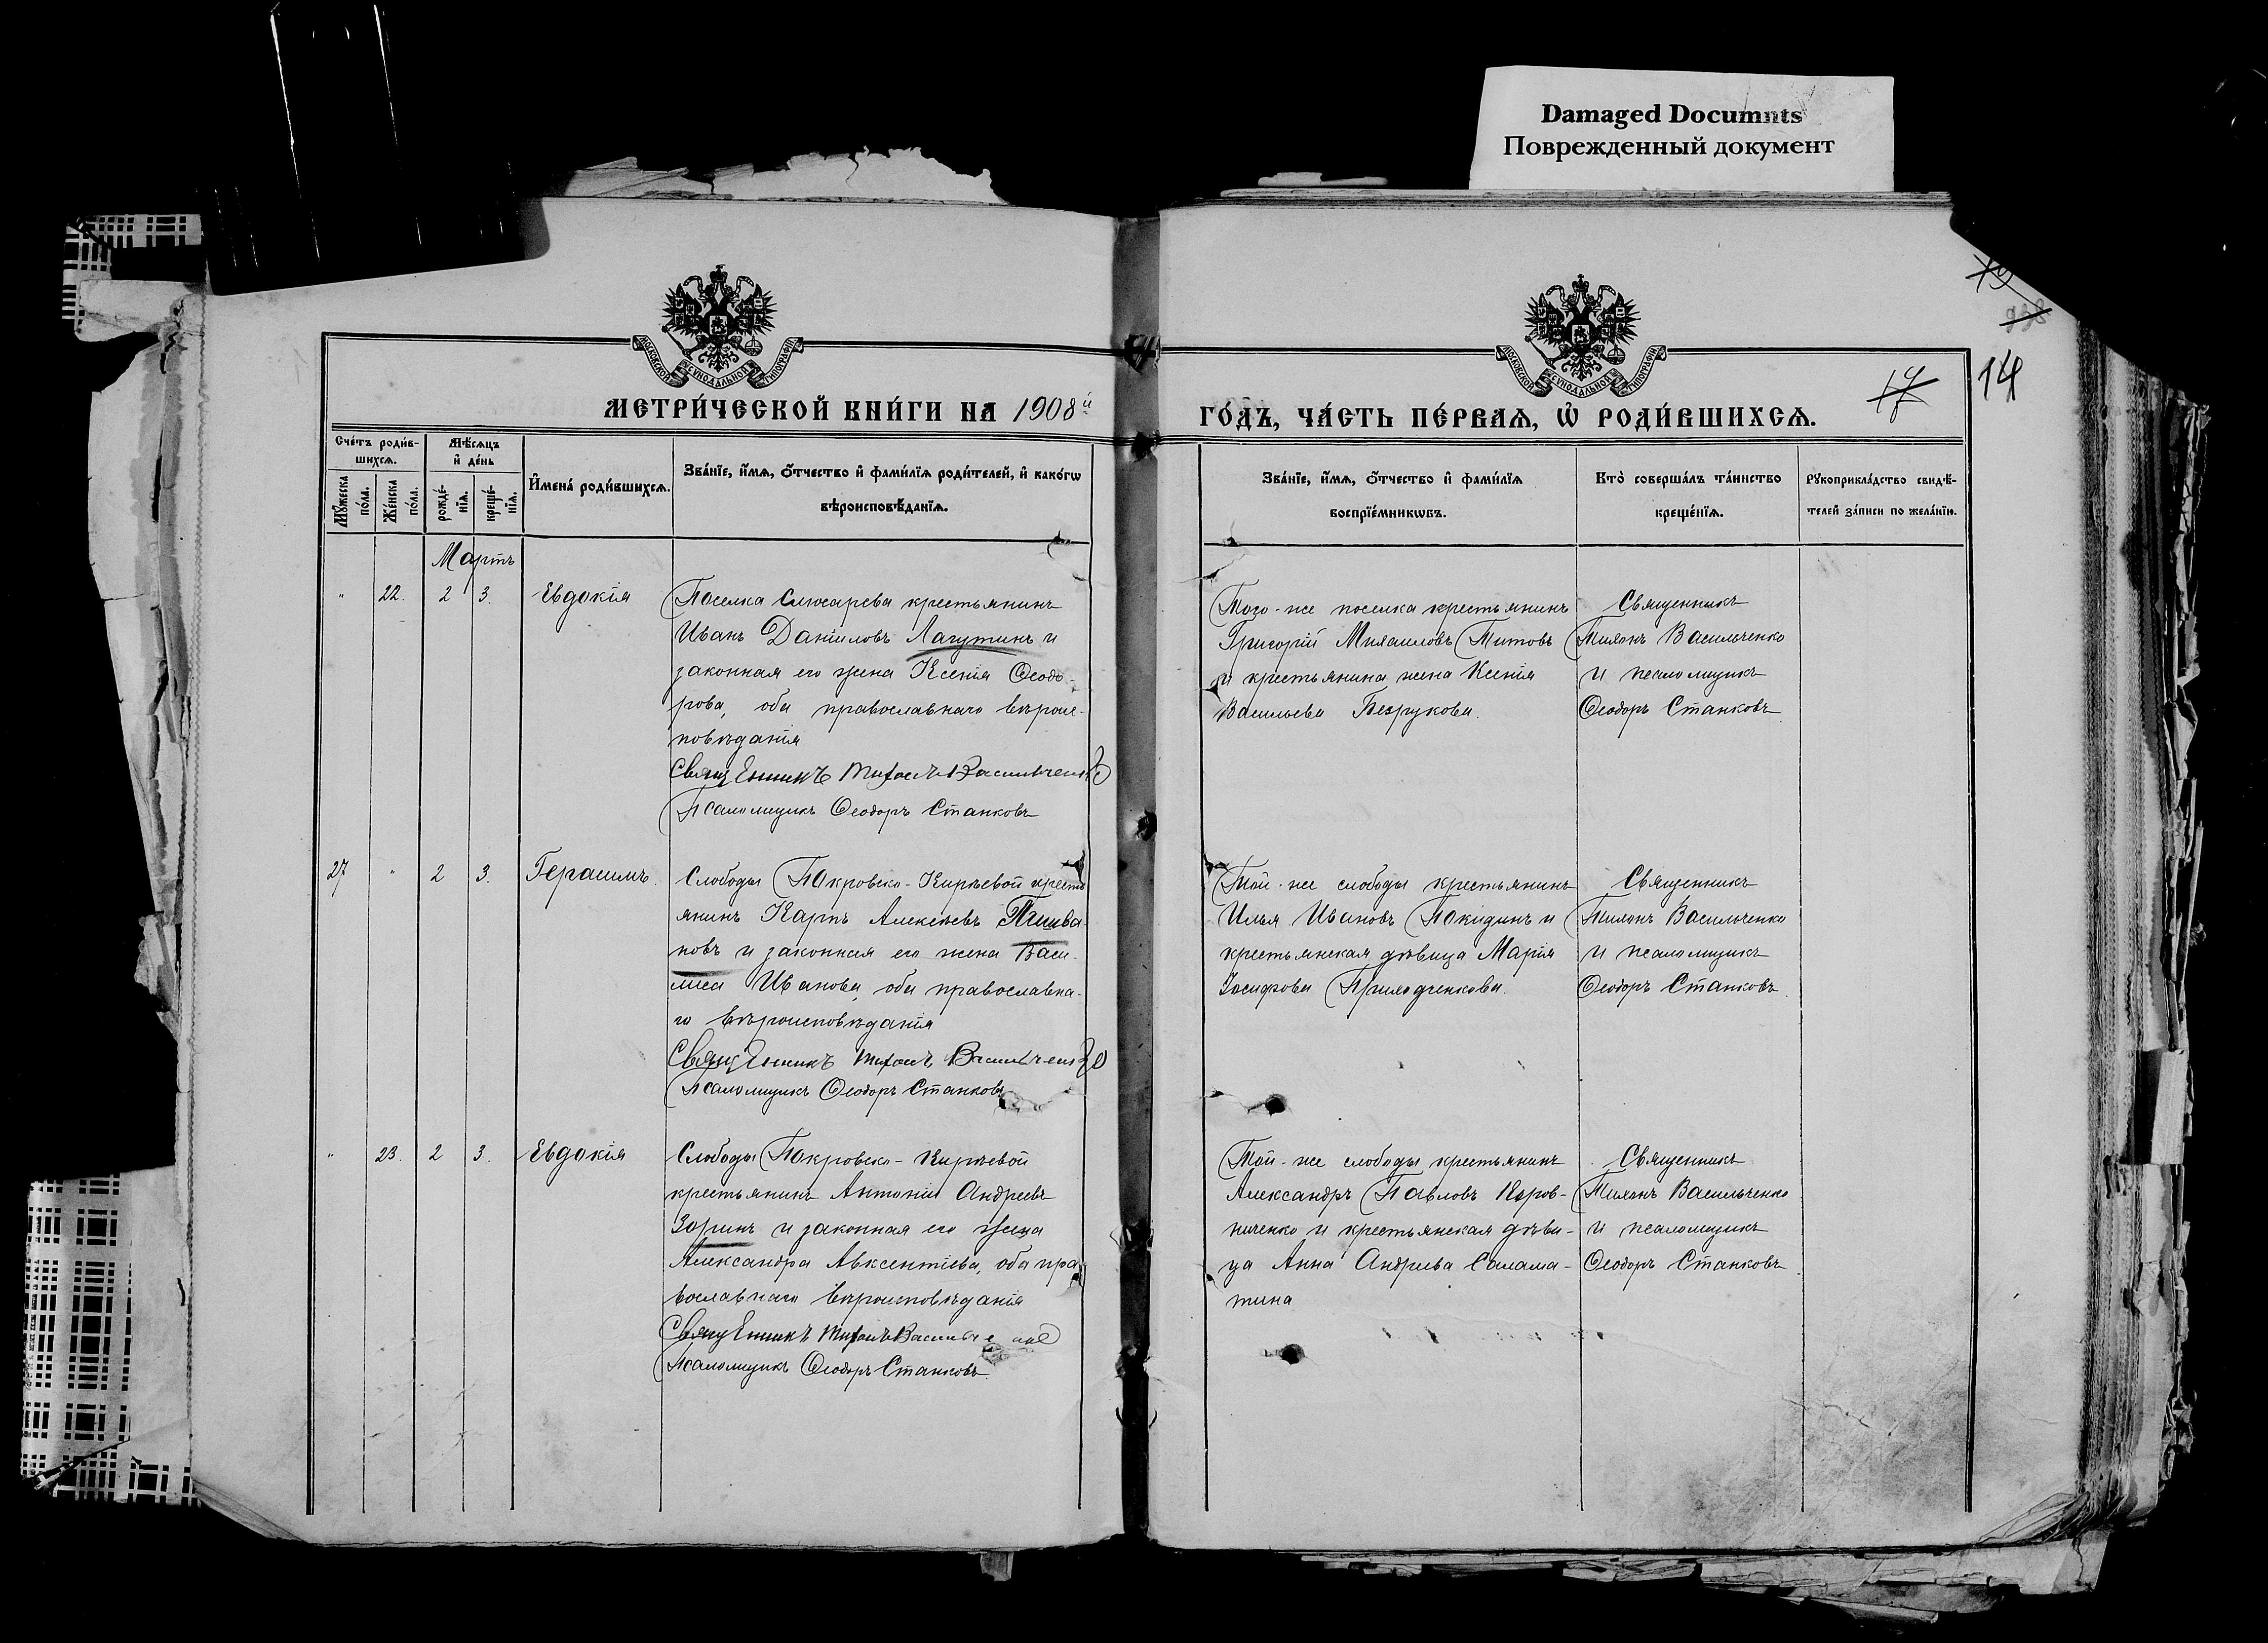 Damaged Documnts
Поврежденный документ
14
17
МОСКОВСКОЙ СѴНОДАЛЬНОЙ ТИПОГРАФІИ
МОСКОВСКОЙ СѴНОДАЛЬНОЙ ТИПОГРАФІИ
МЕТРИ́ЧЕСКОЙ КНИ́ГИ НА 1908й
ГО́ДЪ, ЧА́СТЬ ПЕ́РВАѦ, Ѡ҆ РОДИ́ВШИХСѦ.
Сче́тъ роди́в-
шихсѧ.
Мѣ́сѧцъ
и҆ де́нь
Мꙋ́жеска по́ла.
Же́нска по́ла.
рожде́-
нїѧ.
креще́-
нїѧ.
И҆мена̀ роди́вшихсѧ.
Зва́нїе, и҆́мѧ, ѻ҆́тчество и҆ фами́лїѧ роди́телей, и҆ како́гѡ
вѣроисповѣ́данїѧ.
Зва́нїе, и҆́мѧ, ѻ҆́тчество и҆ фами́лїѧ
воспрїе́мникѡвъ.
Кто̀ соверша́лъ та́инство
креще́нїѧ.
Рꙋкоприкла́дство свидѣ́-
телей за́писи по жела́нїю.
Мартъ
" 22. 2 3. Евдокія
Поселка Слюсарева крестьянинъ
Иванъ Даніиловъ Лагутинъ и
законная его жена Ксенія Ѳеодо-
рова, оба православнаго вѣроис-
повѣданія
Священникъ Тихонъ Васильченко
Псаломщикъ Ѳеодоръ Станковъ
Того-же поселка крестьянинъ
Григорій Михаиловъ Титовъ
и крестьянина жена Ксенія
Васильева Безрукова.
Священникъ
Тихонъ Васильченко
и псаломщикъ
Ѳеодоръ Станковъ
27 " 2 3. Герасимъ.
Слободы Покровско-Кирѣевой кресть
янинъ Карпъ Алексѣевъ
новъ и законная его жена Васи-
лиса Иванова, оба православна-
го вѣроисповѣданія
Священникъ Тихонъ Васильченко
Псаломщикъ Ѳеодоръ Станковъ
Той-же слободы крестьянинъ
Илья Ивановъ Покидинъ и
крестьянская дѣвица Марія
Іосифова Приходченкова.
Священникъ
Тихонъ Васильченко
и псаломщикъ
Ѳеодоръ Станковъ.
" 23. 2 3. Евдокія
Слободы Покровско-Кирѣевой
крестьянинъ Антоній Андреевъ
Зоринъ и законная его жена
Александра Авксентіева, оба пра
вославнаго вѣроисповѣданія
Священникъ Тихонъ Васильченко
Псаломщикъ Ѳеодоръ Станковъ.
Той-же слободы крестьянинъ
Александръ Павловъ Коров-
ниченко и крестьянская дѣви-
ца Анна Андреева Салама-
тина
Священникъ
Тихонъ Васильченко
и псаломщикъ
Ѳеодоръ Станковъ